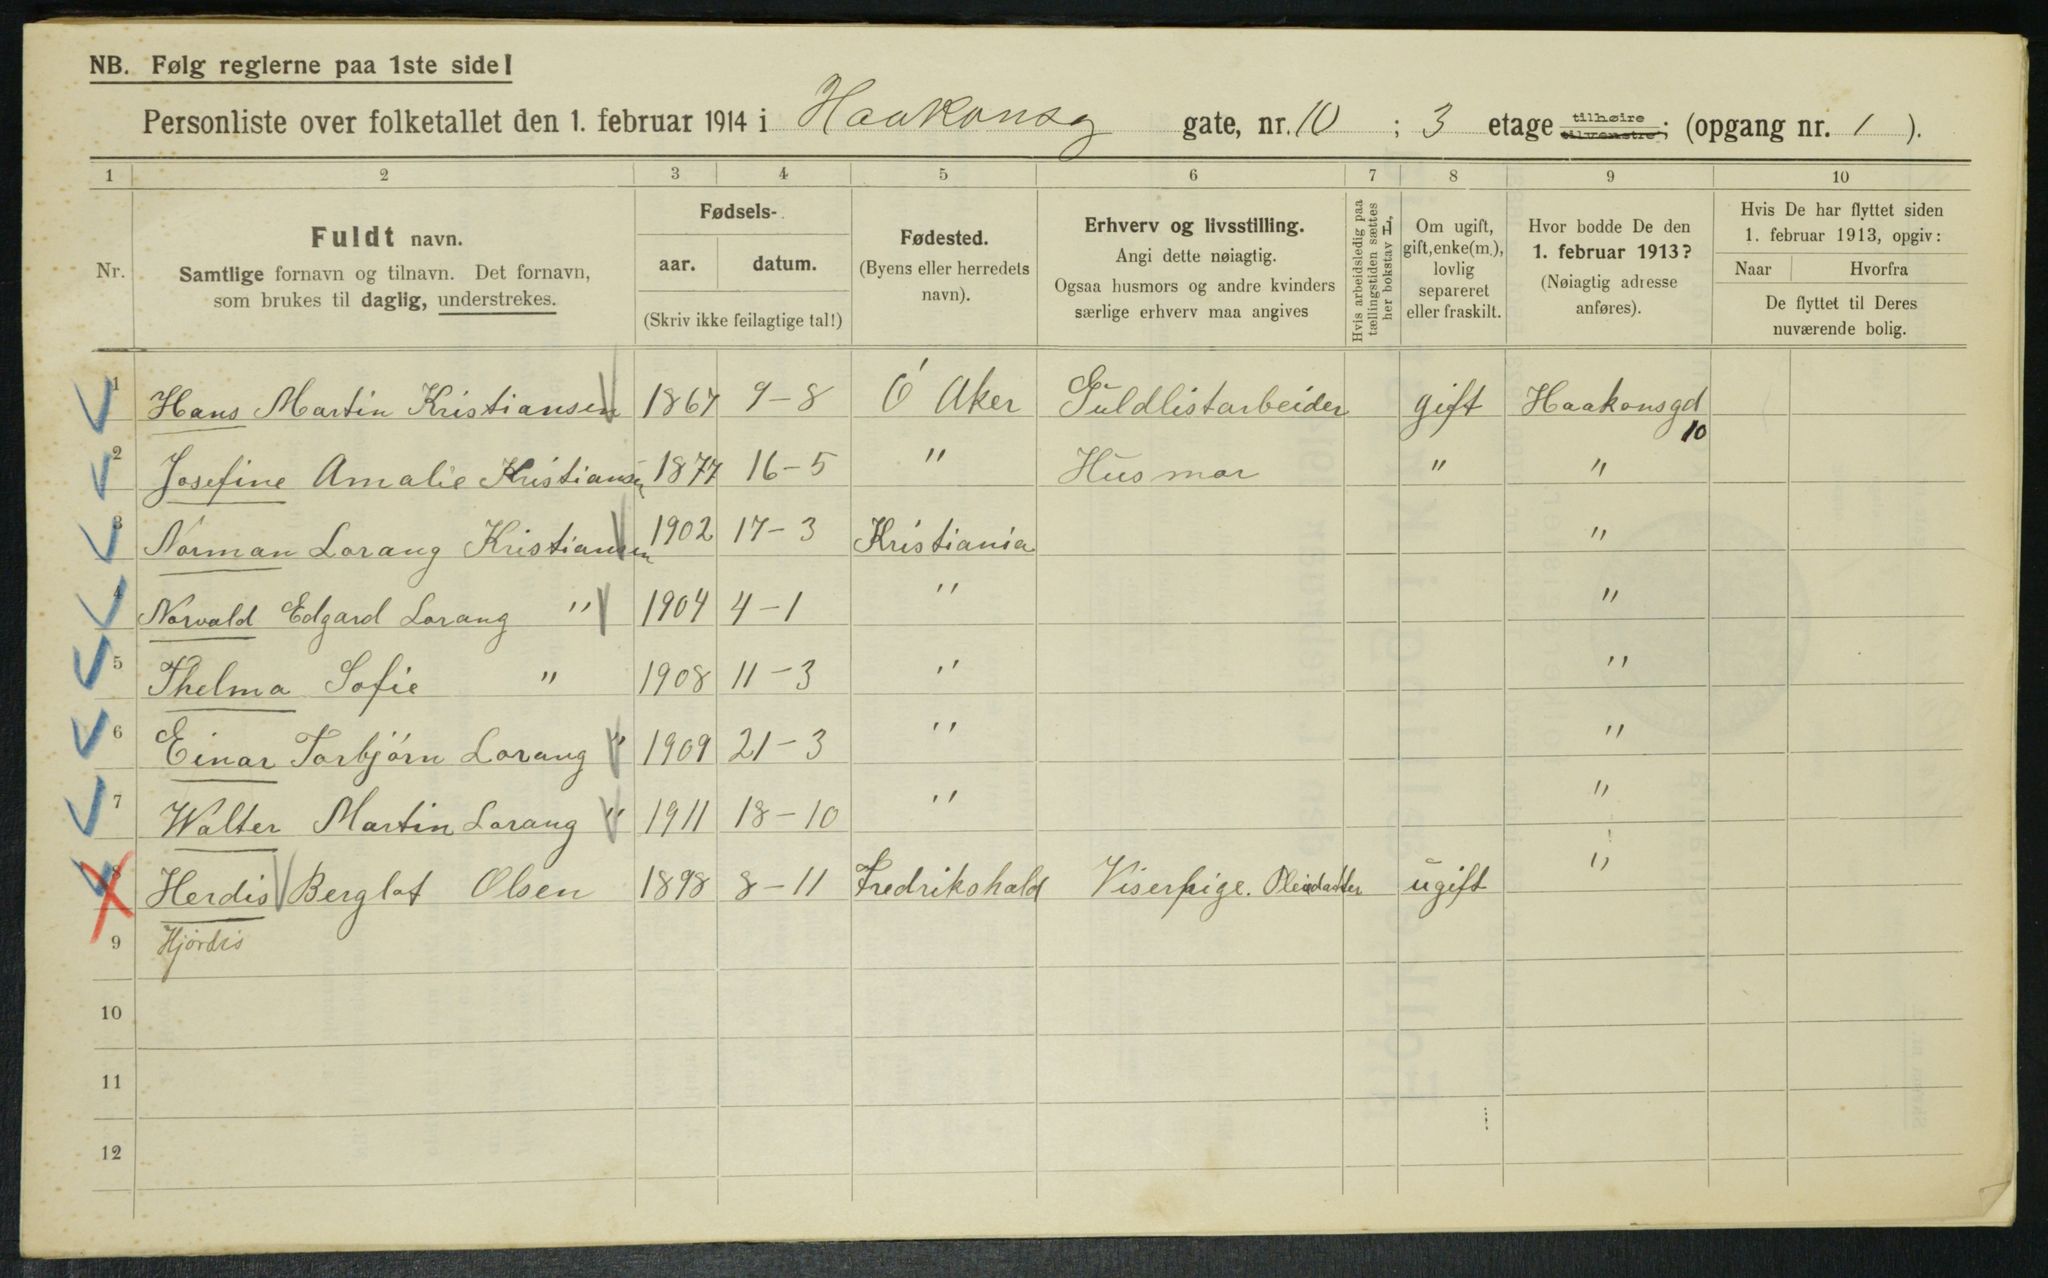 NB. Følg reglerne paa 1ste side!
Personliste over folketallet den 1. februar 1914 i Haakonsg gate, nr. 10 ; 3 etage tilhøire tilvenstre; (opgang nr. 1 ).
1 2 3 4 5 6 7 8 9 10
Nr.
Fuldt navn.
Samtlige fornavn og tilnavn. Det fornavn,
som brukes til daglig, understrekes.
Fødsels-
aar. datum.
(Skriv ikke feilagtige tal!)
Fødested.
(Byens eller herredets
navn).
Erhverv og livsstilling.
Angi dette nøiagtig.
Ogsaa husmors og andre kvinders
særlige erhverv maa angives
Hvis arbeidsledig paa
tællingstiden sættes
her bokstav L.
Om ugift,
gift, enke(m.),
lovlig
separeret
eller fraskilt.
Hvor bodde De den
1. februar 1913?
(Nøiagtig adresse
anføres).
Hvis De har flyttet siden
1. februar 1913, opgiv:
Naar Hvorfra
De flyttet til Deres
nuværende bolig.
1 Hans Martin Kristiansen 1867 9-8 Ó Aker Guldlistarbeider gift Haakonsgd 10
2 Josefine Amalie Kristiansen 1877 16-5 " Husmor " "
3 Norman Lorang Kristiansen 1902 17-3 Kristiania "
4 Norvald Edgard Lorang " 1904 4-1 " "
5 Thelma Sofie " 1908 11-3 " "
6 Einar Torbjörn Lorang " 1909 21-3 " "
7 Walter Martin Lorang " 1911 18-10 " "
8 Herdis Berglot Olsen 1898 8-11 Fredrikshald Viserpige. ugift "
9 Hjórdis
10
11
12